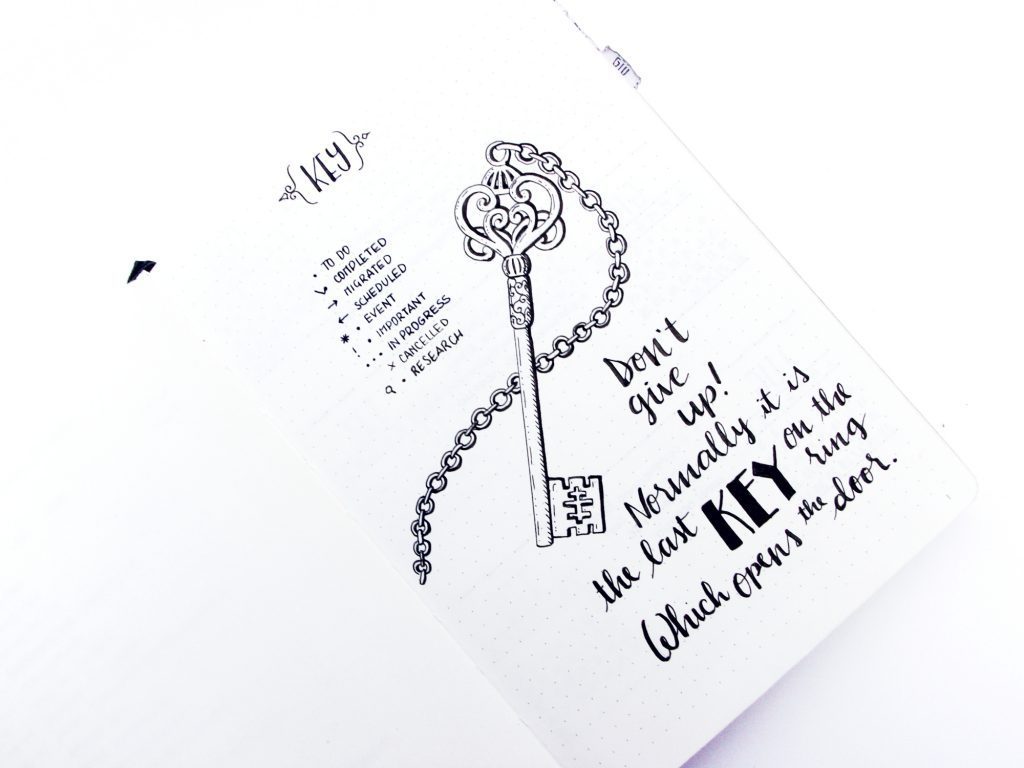 GIU
{KEY}
• TO DO
✓ COMPLETED
→ MIGRATED
← SCHEDULED
* • EVENT
! • IMPORTANT
... IN PROGRESS
x CANCELLED
q • RESEARCH
Don't
give
up!
Normally it is
the last KEY on the
ring
Which opens the door.